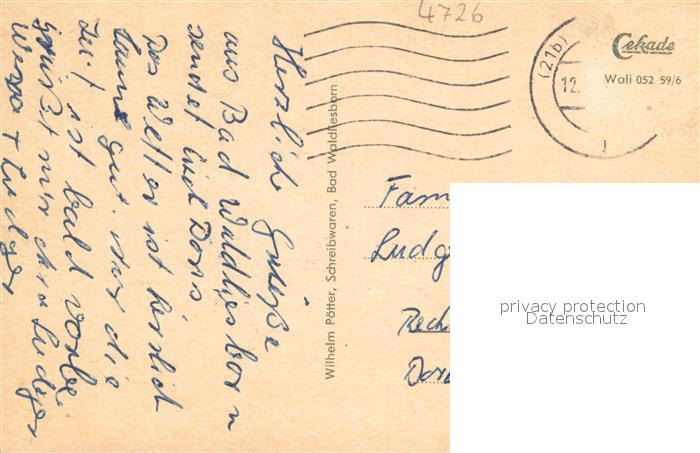 4726
Cekade
Wali 052 59/6
(21b)
12.
Herzliche Grüße
aus Bad Waldliesborn
sendet Euch Doris
Das Wetter ist herrlich
Laune gut. nur die
Zeit ist bald vorbei
grüßt mir Ludger
u Ludger
Wilhelm Pötter, Schreibwaren, Bad Waldliesborn
Fam
Ludg
Rech
Dor
privacy protection
Datenschutz